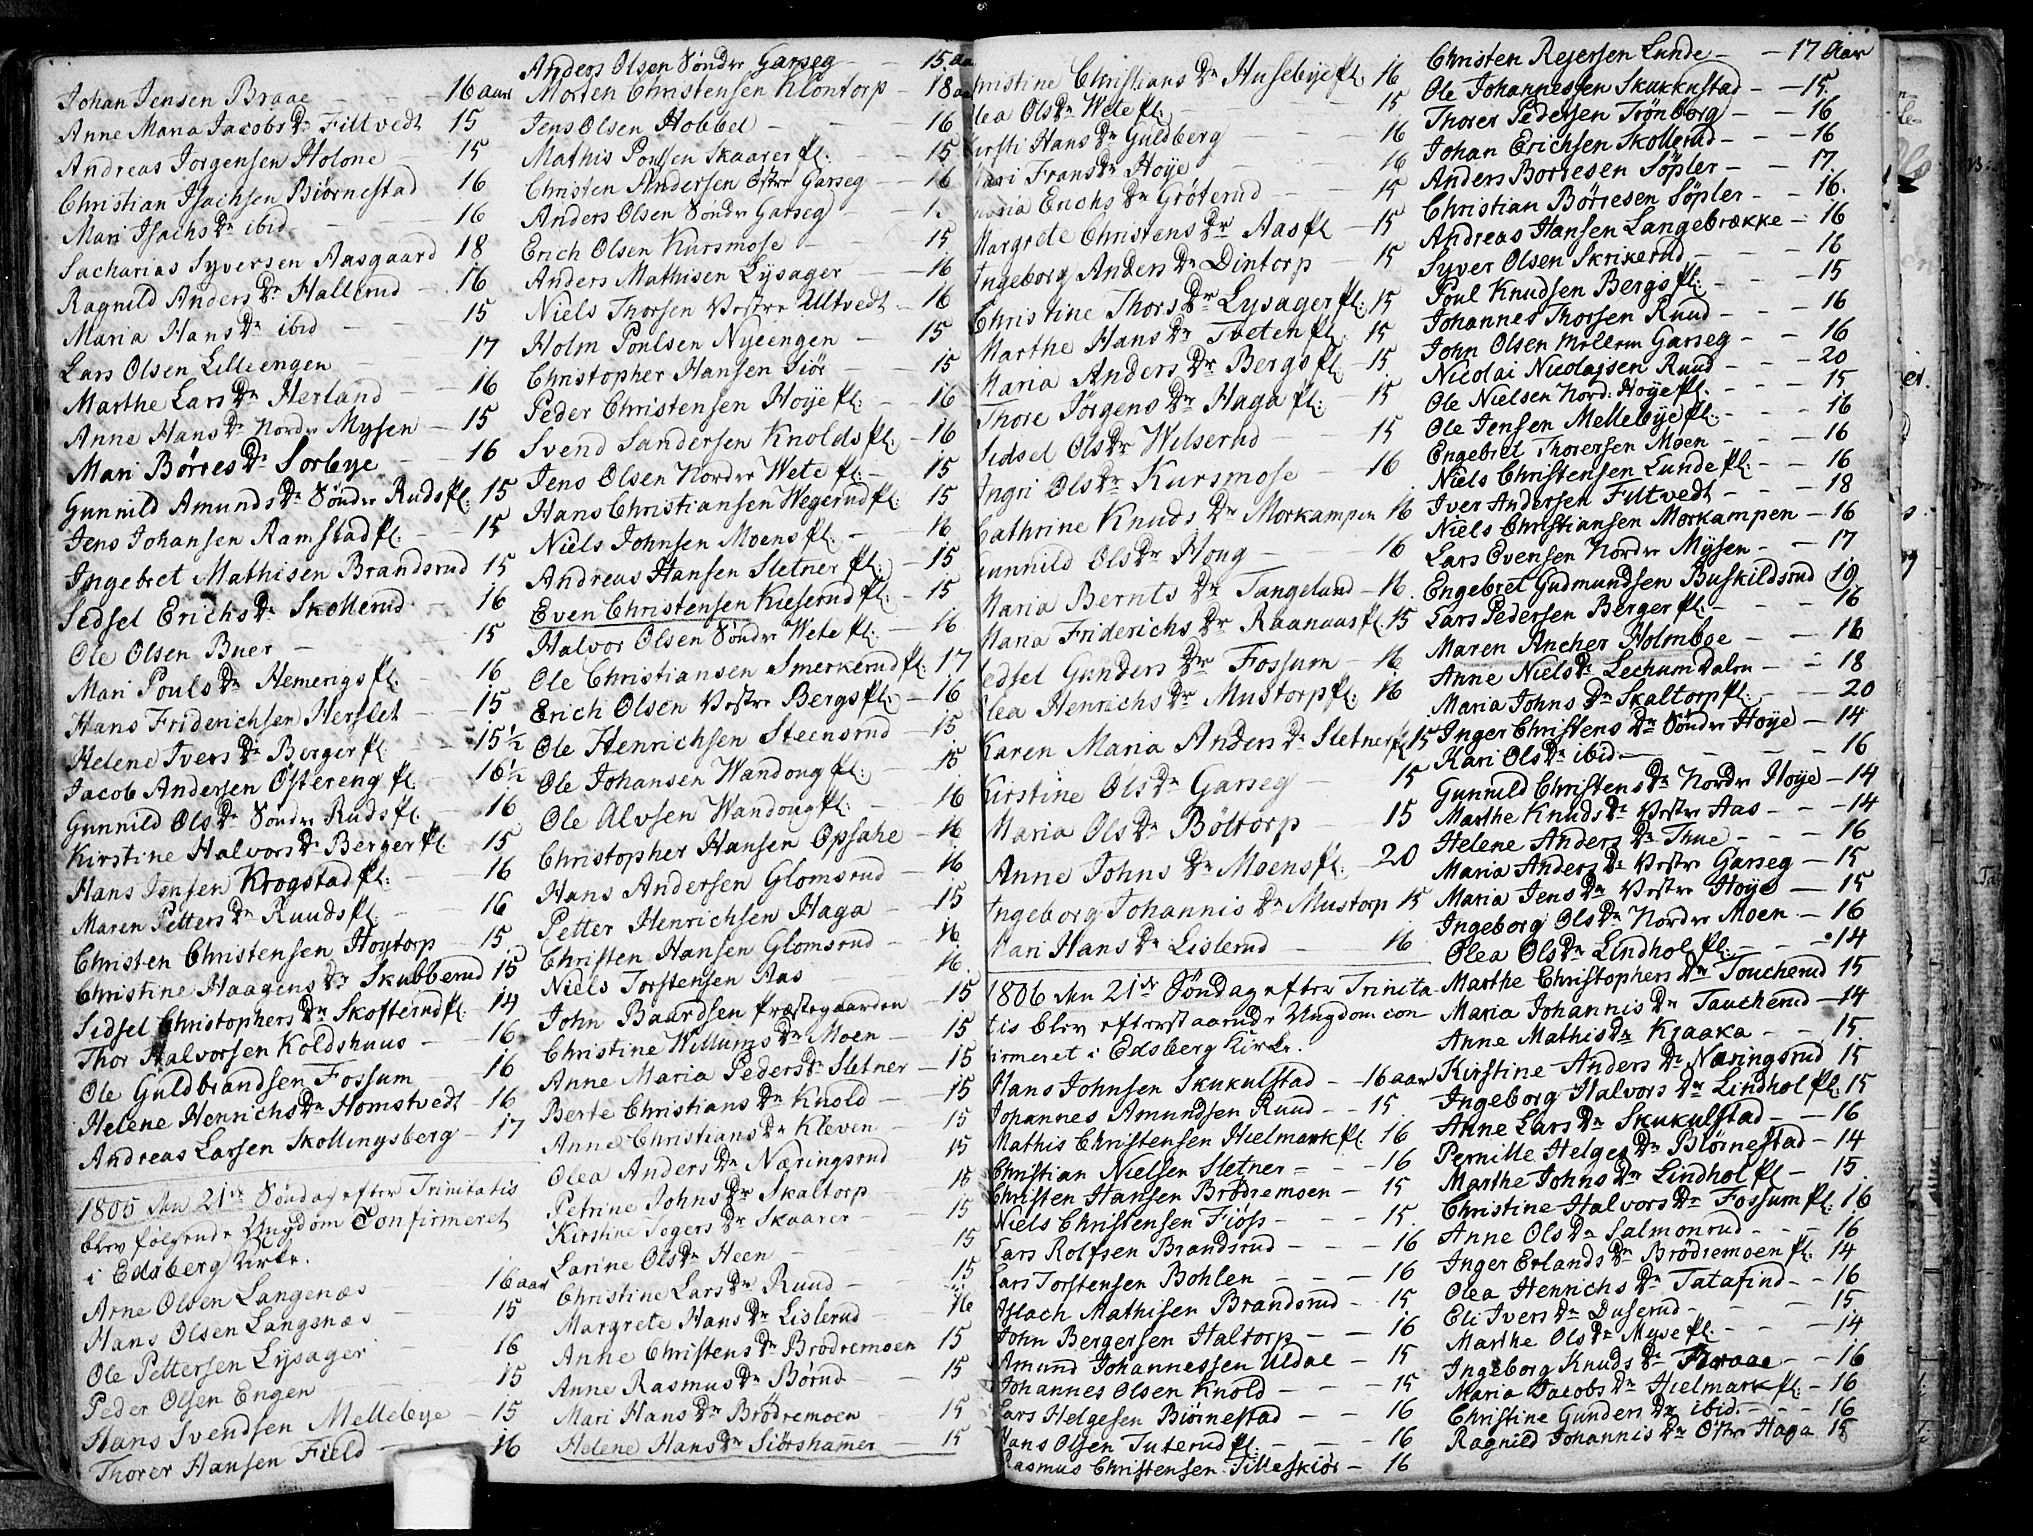 Johan Jensen Braae - - 16 aar
Anne Maria Jacobs Dr Filtvedt 15
Andreas Jorgensen Holone - 15
Christian Isachsen Biørnestad 16
Mari Isachs Dr ibid - 16
Sacharias Syversen Aasgaard 18
Ragnild Anders Dr Hallerud - 16
Maria Hans Dr ibid - - 15
Lars Olsen Lilleengen - 17
Marthe Lars Dr Herland - 16
Anne Hans Dr Nordre Mysen - 15
Mari Børres Dr Sorbye - - 16
Gunnild Amunds Dr Søndre Rudspl: 15
Jens Johansen Ramstadpl: - 15
Ingebret Mathisen Brandsrud 15
Sedsel Erichs Dr Skollerud - 16
Ole Olsen Buer - - 15
Mari Pouls Dr Hemerigspl. - 16
Hans Friderichsen Herslet - 15
Helene Ivers Dr Berger pl - 15½
Jacob Andersen Østereng pl - 16½
Gunnild Ols Dr Søndre Rudspl - 16
Kirstine Halvors Dr Bergerpl 15
Hans Jensen Krogstadpl: - 16
Maren Petters Dr Ruudspl. - 16
Christen Christensen Høytorp - 15
Christine Haagens Dr Skubberud 15
Sidsel Christophers Dr Skofterudpl. 14
Thor Halvorsen Koldshuus - 16
Ole Guldbrandsen Fossum - 16
Helene Henrichs Dr Homstvedt - 16
Andreas Larsen Skollingsberg - 17
1805 den 21de Søndag efter Trinitatis
blev følgende Ungdom Confirmeret
i Edsberg Kirke.
Arne Olsen Langenæs - 16 aar
Hans Olsen Langsnæs - 15
Ole Pettersen Lysager - 16
Peder Olsen Engen - 15
Hans Svendsen Mellebye - 15
Thorer Hansen Field - 16
Anders Olsen Søndre Garseg - 15 aa
Morten Christensen Klontorp - 18 aa
Jens Olsen Hobbel - - 16
Mathis Poulsen Skaarer pl. - 15
Christen Andersen Østre Garseg - 16
Anders Olsen Søndre Garseg -
Erich Olsen Kursmose - 15
Anders Mathisen Lysager - 16
Niels Thorsen Vestre Ultvedt - 16
Holm Poulsen Nyeengen - 15
Christopher Hansen Siør - 15
Peder Christensen Høyepl. - 16
Svend Sandersen Knoldspl: - 16
Jens Olsen Nordre Wete pl - 15
Hans Christiansen Wegerudpl: 15
Niels Johnsen Moenspl. - 16
Andreas Hansen Sletner pl: - 15
Even Christensen Kieserudpl: - 15
Halvor Olsen Søndre Wete pl: - 16
Ole Christiansen Smerkerudpl: 17
Erich Olsen Vestre Bergspl: - 16
Ole Henrichsen Steensrud - 15
Ole Johansen Wandoug pl: - 15
Ole Alvsen Wandougpl: - 16
Christopher Hansen Opsahe - 16
Hans Andersen Glomsrud - 16
Petter Henrichsen Haga - 15
Christen Hansen Glomsrud - 16
Niels Torstensen Aas - 16
John Baardsen Præstegaarden - 15
Christine Willums Dr Moen - 15
Anne Maria Peders Dr Sletner - 15
Berte Christians Dr Knold - 15
Anne Christians Dr Kleven - 15
Olea Anders Dr Næringsrud 15
Petrine Johns Dr Skaltorp 18
Kirstine Togers Dr Skaarer - 15
Larine Ols Dr Heen - 15
Christine Lars Dr Ruud - 15
Margrete Hans Dr Lislerud - 16
Anne Christens Dr Brødremoen 15
Anne Rasmus Dr Børud - 15
Mari Hans Dr Brødremoen - 15
Helene Hans Dr Siørshamer - 15
hristine Christians Dr Husebyepl. 16
lea Ols Dr Wetepl: - 15
irsti Hans Dr Guldberg - 16
ari Frans Dr Høye - 16
Erichs Dr Grøterud - 15
Margrete Christens Dr Aaspl - 15
Ingeborg Anders Dr Dintorp - 15
Christine Thors Dr Lysagerpl: 15
Marthe Hans Dr Tvetenpl. 15
Maria Anders Dr Bergspl - 15
Thore Jørgens Dr Haga pl: - 15
Sidsel Ols Dr Welserud - 15
Ingri Ols Dr Kursmose - 16
Cathrine Knuds Dr Morkampen 16
Gunnild Ols Dr Houg - 16
Maria Bernts Dr Tangelund - 16.
Maria Friderichs Dr Raanaaspl. 15
edsel Gunders Dr Fossum - 16
lea Henrichs Dr Mustorppl: 16
Karen Maria Anders Dr Sletnerpl 15
Kirstine Ols Dr Garseg - 15
Maria Ols Dr Bøltorp - 15
Anne Johns Dr Moenspl. - 20
Ingeborg Johannis Dr Mustorp 15
Mari Hans Dr Lislerud - 16
1806 den 21de Søndag efter Trinita
tis blev efterstaaende Ungdom con
firmeret i Edsberg Kirke.
Hans Johnsen Skukulstad - 16 aar
Johannes Amundsen Ruud - 15.
Mathis Christensen Hielmarkpl. 16
Christian Nielsen Sletner - - 16
Christen Hansen Brødremoen - 15
Niels Christensen Fiøss - - - 15.
Lars Rolfsen Brandsrud - - 16
Lars Torstensen Bohlen - - 16
Islach Mathisen Brandsrud - 15
John Bergersen Haltorp - - 16
Amund Johannessen Uldal - 15
Johannes Olsen Knold - - - 15
Lars Helgesen Biørnestad - - 16
Hans Olsen Tuterudpl: - - - 16
Rasmus Christensen Tilleskiør - 16
Christen Rejersen Lunde - - 17 Aar
Ole Johannessen Skukkustad - - 15.
Thorer Pedersen Trønborg - - 16
Johan Erichsen Skollerud - - 16
Anders Borresen Søpler - - 17.
Christian Børresen Søpler - - 16.
Andreas Hansen Langebrække - 16
Syver Olsen Skrikerud - - - 16
Poul Knudsen Bergspl: - - 15
Johannes Thorsen Ruud - - - 16
John Olsen Mellem Garseg - - 16
Nicolai Nicolajsen Ruud - - - 20
Ole Nielsen Nord. Høyepl. - - - 15
Ole Jensen Mellebyepl. - - - 16
Engebret Thorersen Moen - - - 16
Niels Christensen Lundepl. - - 16
Iver Andersen Filtvedt - - - 18
Niels Christiansen Morkampen - 16
Lars Evensen Nordre Mysen - - 17
Engebret Gudmundsen Buskildsrud (19
Lars Pedersen Bergerpl. - - - 16
Maren Ancher Holmboe - - 16
Anne Niels Dr Lechum Dalen - - 18
Maria Johns Dr Skaltorppl. - - 20
Inger Christens Dr Søndre Høye - 14
Kari Ols Dr ibid. - - - - 16
Gunnild Christens Dr Nordre Høye - 14
Marthe Knuds Dr Vestre Aas - - - 14
Helene Anders Dr Thue - - - 16
Maria Anders Dr Vestre Garseg - 15
Maria Jens Dr Vestre Høye - 15
Ingeborg Ols Dr Nordre Moen - - 16
Olea Ols Dr Lindhol pl. - - - 14
Marthe Christophers Dr Toucherud 15
Maria Johannis Dr Taucherud - 14
Anne Mathis Dr Kraaka - - 15
Kirstine Anders Dr Næringsrud 15
Ingeborg Halvors Dr Lindhol pl. 15
Anne Lars Dr Skukulstad - - 16
Pernille Helges Dr Biørnestad - 14
Marthe Johns Dr Lindhol pl - 15.
Christine Halvors Dr Fossum pl. 16
Anne Ols Dr Salmonrud - - - 16
Inger Erlands Dr Brødremoen pl. 14
Olea Henrichs Dr Tatafind - - 16
Eli Ivers Dr Duserud - - - 15.
Marthe Ols Dr Myse pl. - - - 14
Ingeborg Knuds Dr Braae - - 16
Maria Jacobs Dr Hielmarkpl. - 16
Christine Gunders Dr ibid. - - - 16
Ragnild Johannis Dr Østre Haga 15